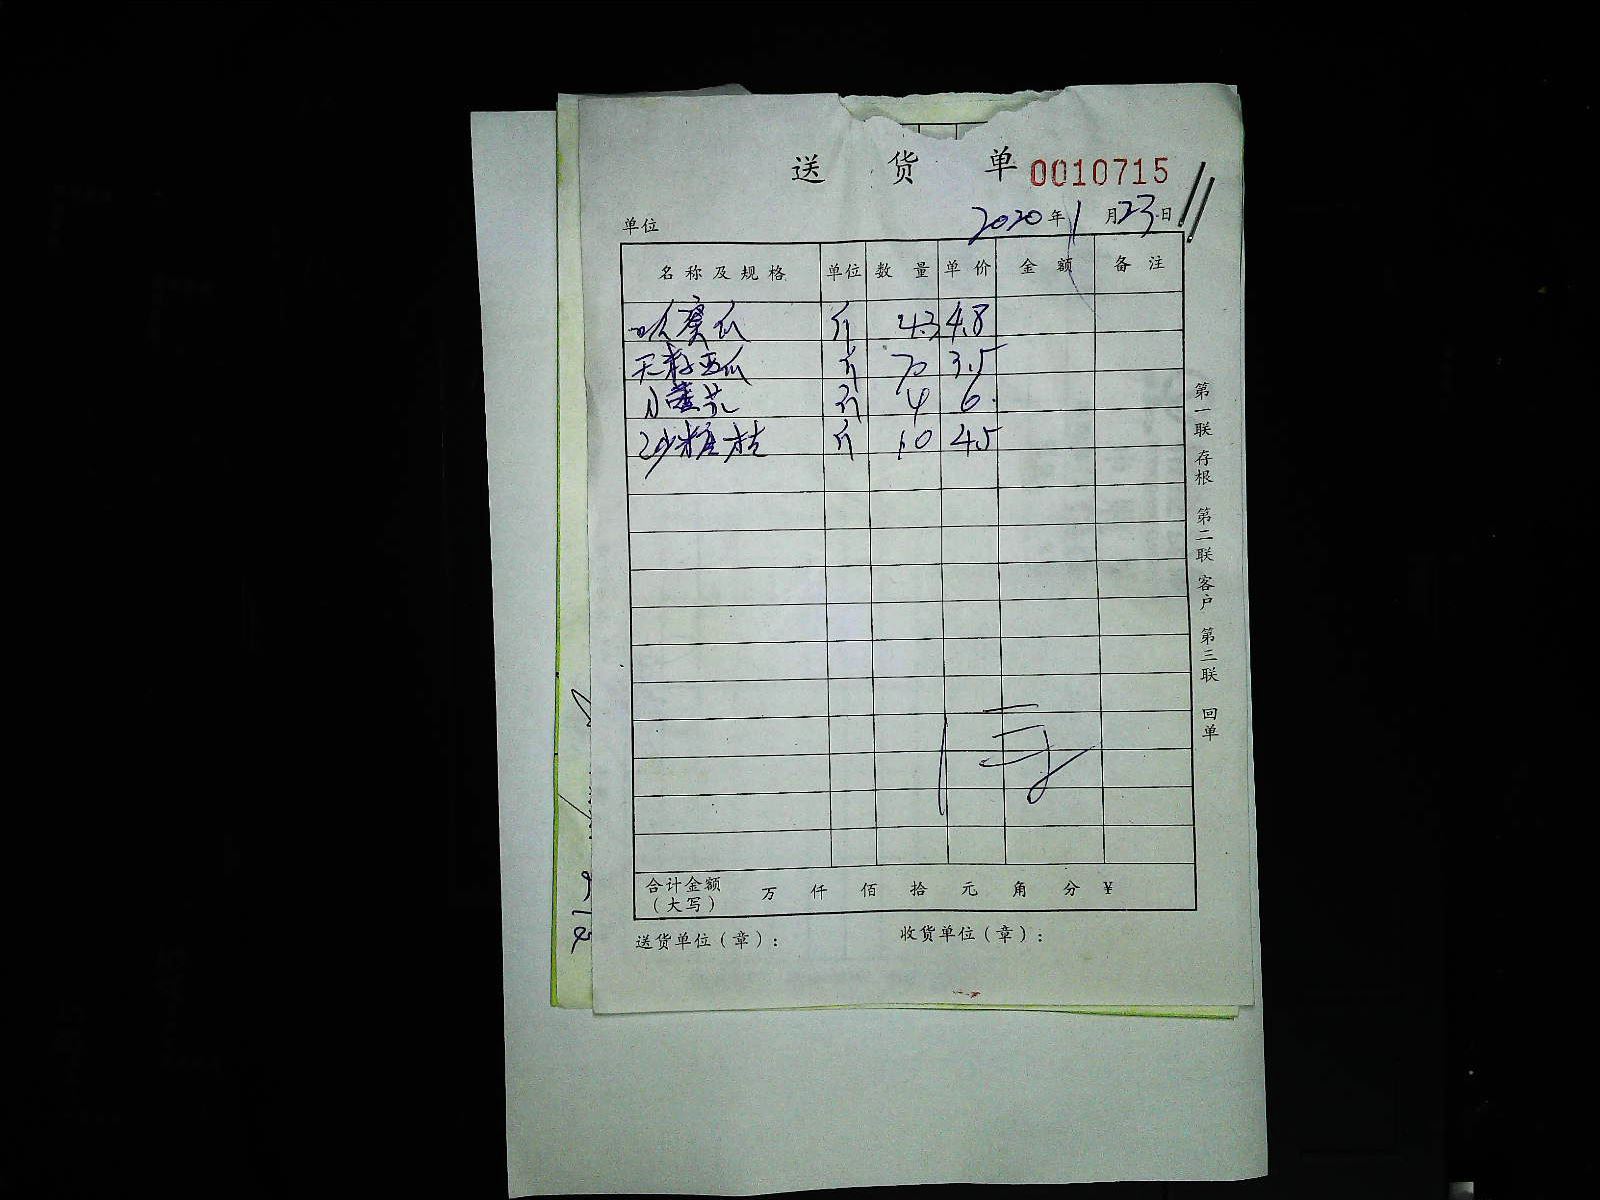 送货单 0010715
单位 2020年1月23日
名称及规格 单位 数量 单价 金额 备注
哈蜜瓜 斤 43 4.8
无籽西瓜 斤 70 3.5
小番茄 斤 4 6
沙糖桔 斤 10 4.5
合计金额(大写) 万 仟 佰 拾 元 角 分 ¥
送货单位(章): 收货单位(章):
第一联 存根 第二联 客户 第三联 回单